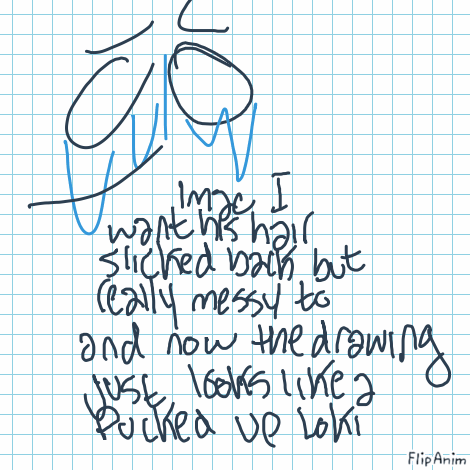 imac I
want his hair
slicked back but
really messy to
and now the drawing
just looks like a
Fucked up loki
FlipAnim